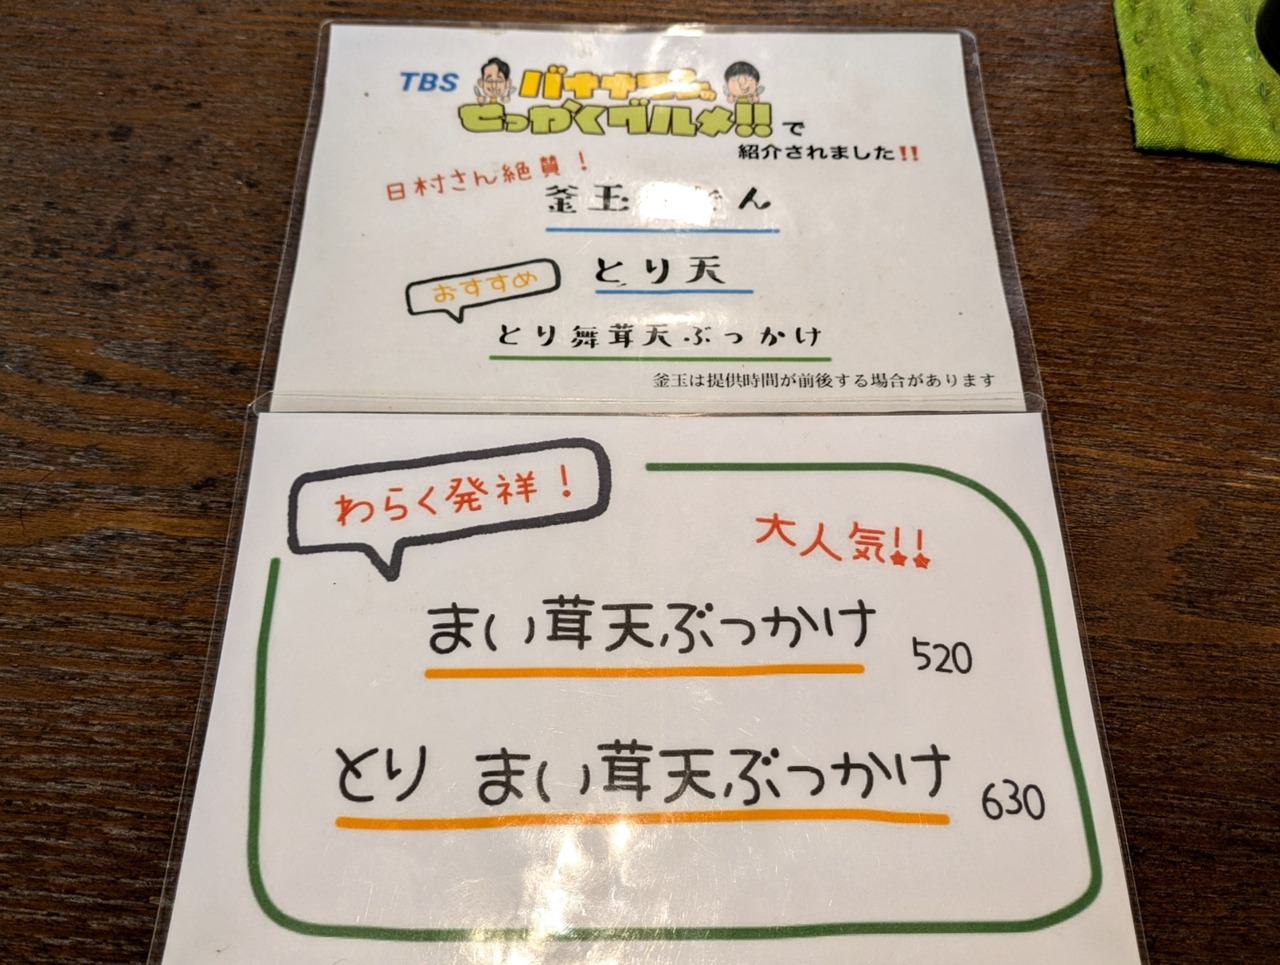 TBS
バナナマンの
せっかくグルメ!!で
紹介されました!!
日村さん絶賛！
釜玉 ん
とり天
おすすめ
とり舞茸天ぶっかけ
釜玉は提供時間が前後する場合があります
わらく発祥！
大人気!!
まい茸天ぶっかけ 520
とり まい茸天ぶっかけ 630